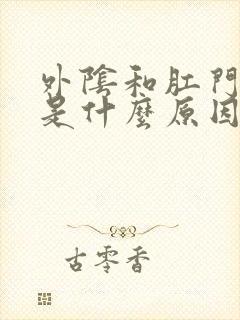 外陰和肛門
是什麼原因
古零香